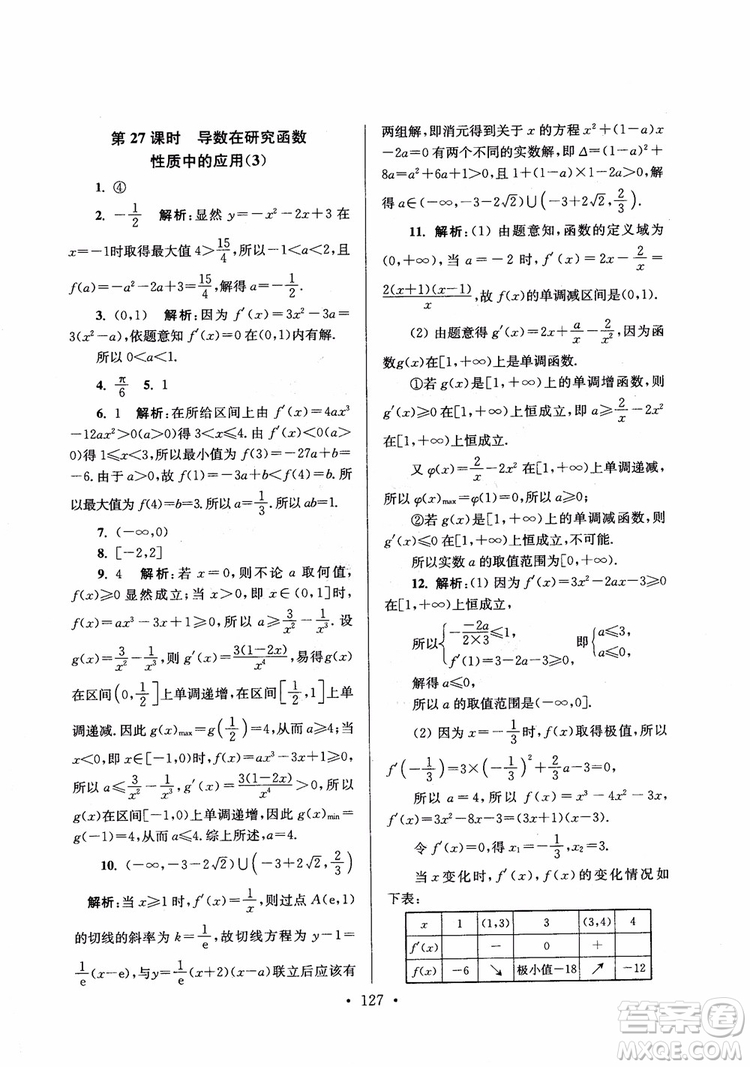 第 27 课时　导数在研究函数
性质中的应用(3)
1. ④
2. −1/2　解析:显然 y=−x²−2x+3 在
x=−1时取得最大值 4>15/4,所以−1<a<2,且
f(a)=−a²−2a+3=15/4,解得 a=−1/2.
3. (0,1)　解析:f′(x)=3x²−3a=
3(x²−a),依题意知 f′(x)在(0,1)内有解.
所以 0<a<1.
4. π/6　5. 1
6. 1　解析:在所给区间上由 f′(x)=4ax³
−12ax²>0⇒3<x≤4. 由 f′(x)=4ax³−12ax²
<0⇒1≤x<3,所以最小值为 f(3)=−27a+b=
−6. 由于 a>0,故 f(1)=−3a+b<f(4)=b,因此
最大值为 f(4)=b=3. 所以 a=1/3. 所以 ab=1.
7. (−∞,0)
8. [−2,2]
9. 4　解析:若 x=0,则不论 a 取何值,
f(x)≥0 显然成立;当 x>0,即 x∈(0,1]时,
f(x)=ax³−3x+1≥0,所以 a≥3/x²−1/x³. 设
g(x)=3/x²−1/x³,则 g′(x)=3(1−2x)/x⁴,易得 g(x)
在区间(0,1/2]上单调递增,在区间[1/2,1]上单
调递减. 因此 g(x)max=g(1/2)=4,从而 a≥4;当
x<0,即 x∈[−1,0)时,f(x)=ax³−3x+1≥
0. 所以 a≤3/x²−1/x³,g′(x)=3(1−2x)/x⁴>0,所以
g(x)在区间[−1,0)上单调递增,因此 g(x)min=
g(−1)=4,从而 a≤4. 综上所述,a=4.
10. (−∞,−3−2√2)∪(−3+2√2,2/3)
解析:f(x)=lnx,f′(x)=1/x,则过点 A(e,1)
的切线的斜率为 k=1/e,故切线方程为 y−1=
1/e(x−e),与y=1/e(x+2)联立后应该有
两组解,即消元得到关于 x 的方程 x²+(1−a)x
−2a=0有两个不同的实数解,即 Δ=(1−a)²+
8a=a²+6a+1>0且 1+(1−a)×1−2a>0,解
得 a∈(−∞,−3−2√2)∪(−3+2√2,2/3).
11. 解析:(1) 由题意知,函数的定义域为
(0,+∞),当 a=−2 时,f′(x)=2x−2/x=
2(x+1)(x−1)/x,故 f(x)的单调减区间是(0,1).
(2) 由题意得 g′(x)=2x+a/x−2/x²,因为函
数g(x)在[1,+∞)上是单调函数.
①若 g(x)是[1,+∞)上的单调增函数,则
g′(x)≥0在[1,+∞)上恒成立,即 a≥2/x−2x²
在[1,+∞)上恒成立.
又 φ(x)=2/x−2x²在[1,+∞)上单调递减,
所以 φ(x)max=φ(1)=0,所以 a≥0;
②若 g(x)是[1,+∞)上的单调减函数,则
g′(x)≤0 在[1,+∞)上恒成立,不可能.
所以实数 a 的取值范围为[0,+∞).
12. 解析:(1) 因为 f′(x)=3x²−2ax−3≥0
在[1,+∞)上恒成立,
所以{−−2a/2×3≤1, f′(1)=−2a≥0,　即{a≤3, a≤0.
解得 a≤0.
所以 a 的取值范围是(−∞,0].
(2) 因为 x=−1/3时,f(x)取得极值,所以
f′(−1/3)=3×(−1/3)²+2/3a−3=0.
所以 a=4,f(x)=x³−4x²−3x,f′(x)=
3x²−8x−3=(3x+1)(x−3).
令 f′(x)=0,得 x₁=−1/3,x₂=3.
当 x 变化时,f′(x)与 f(x)的变化情况如
下表:
x　1　(1,3)　3　(3,4)　4
f′(x)　−　0　+
f(x)　−6　↘　极小值−18　↗　−12
• 127 •
答案圈
MXQE.COM